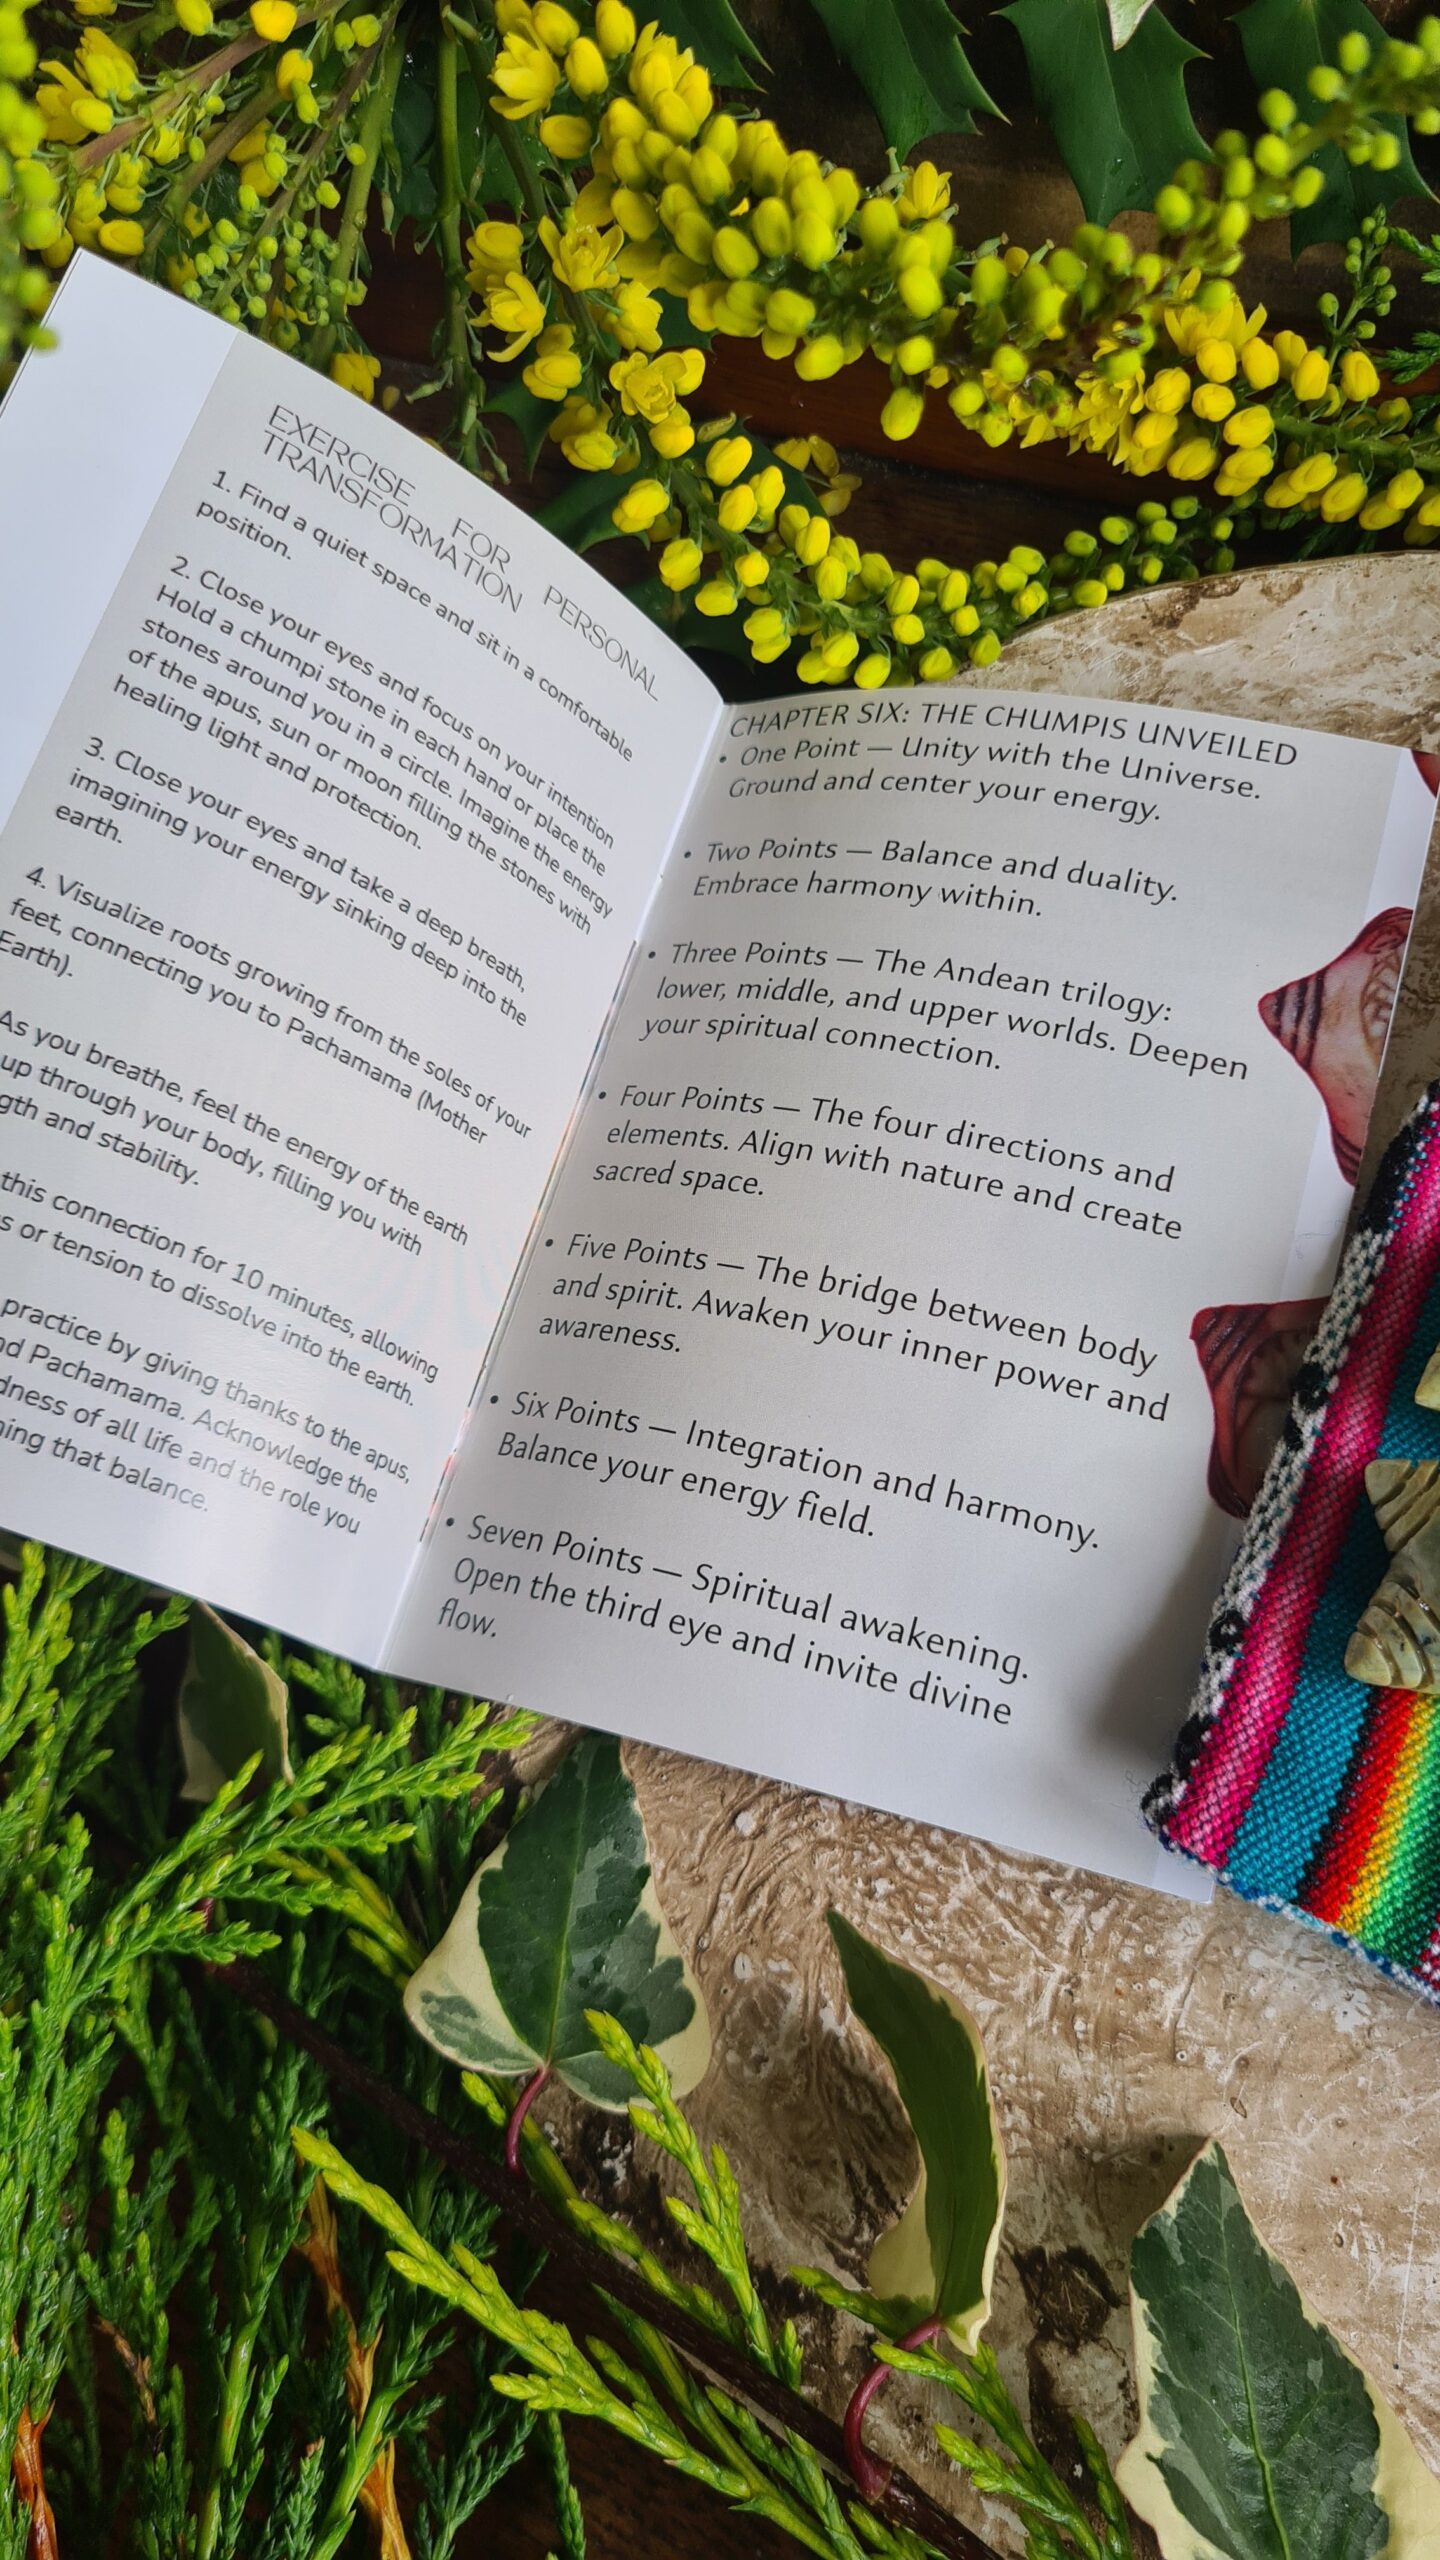 EXERCISE FOR PERSONAL
TRANSFORMATION
1. Find a quiet space and sit in a comfortable
position.
2. Close your eyes and focus on your intention
Hold a chumpi stone in each hand or place the
stones around you in a circle. Imagine the energy
of the apus, sun or moon filling the stones with
healing light and protection.
3. Close your eyes and take a deep breath,
imagining your energy sinking deep into the
earth.
4. Visualize roots growing from the soles of your
feet, connecting you to Pachamama (Mother
Earth).
As you breathe, feel the energy of the earth
up through your body, filling you with
and stability.
this connection for 10 minutes, allowing
or tension to dissolve into the earth.
practice by giving thanks to the apus,
Pachamama. Acknowledge the
of all life and the role you
that balance.
CHAPTER SIX: THE CHUMPIS UNVEILED
• One Point — Unity with the Universe.
Ground and center your energy.
• Two Points — Balance and duality.
Embrace harmony within.
• Three Points — The Andean trilogy:
lower, middle, and upper worlds. Deepen
your spiritual connection.
• Four Points — The four directions and
elements. Align with nature and create
sacred space.
• Five Points — The bridge between body
and spirit. Awaken your inner power and
awareness.
• Six Points — Integration and harmony.
Balance your energy field.
• Seven Points — Spiritual awakening.
Open the third eye and invite divine
flow.